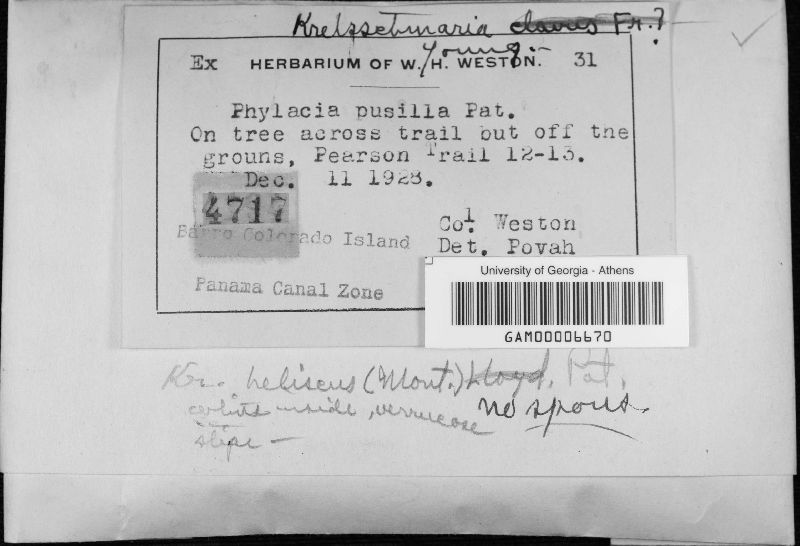 Kretzschmaria clavus Fr.?
Young -
Ex HERBARIUM OF W. H. WESTON. 31
Phylacia pusilla Pat.
On tree across trail but off tne
grouns, Pearson Trail 12-13.
Dec. 11 1928.
4717
Barro Colorado Island
Col. Weston
Det. Povah
Panama Canal Zone
University of Georgia - Athens
GAM00006670
Kr. heliscus (Mont.) Lloyd. Pat.
white inside, verrucose no spores.
stipe -